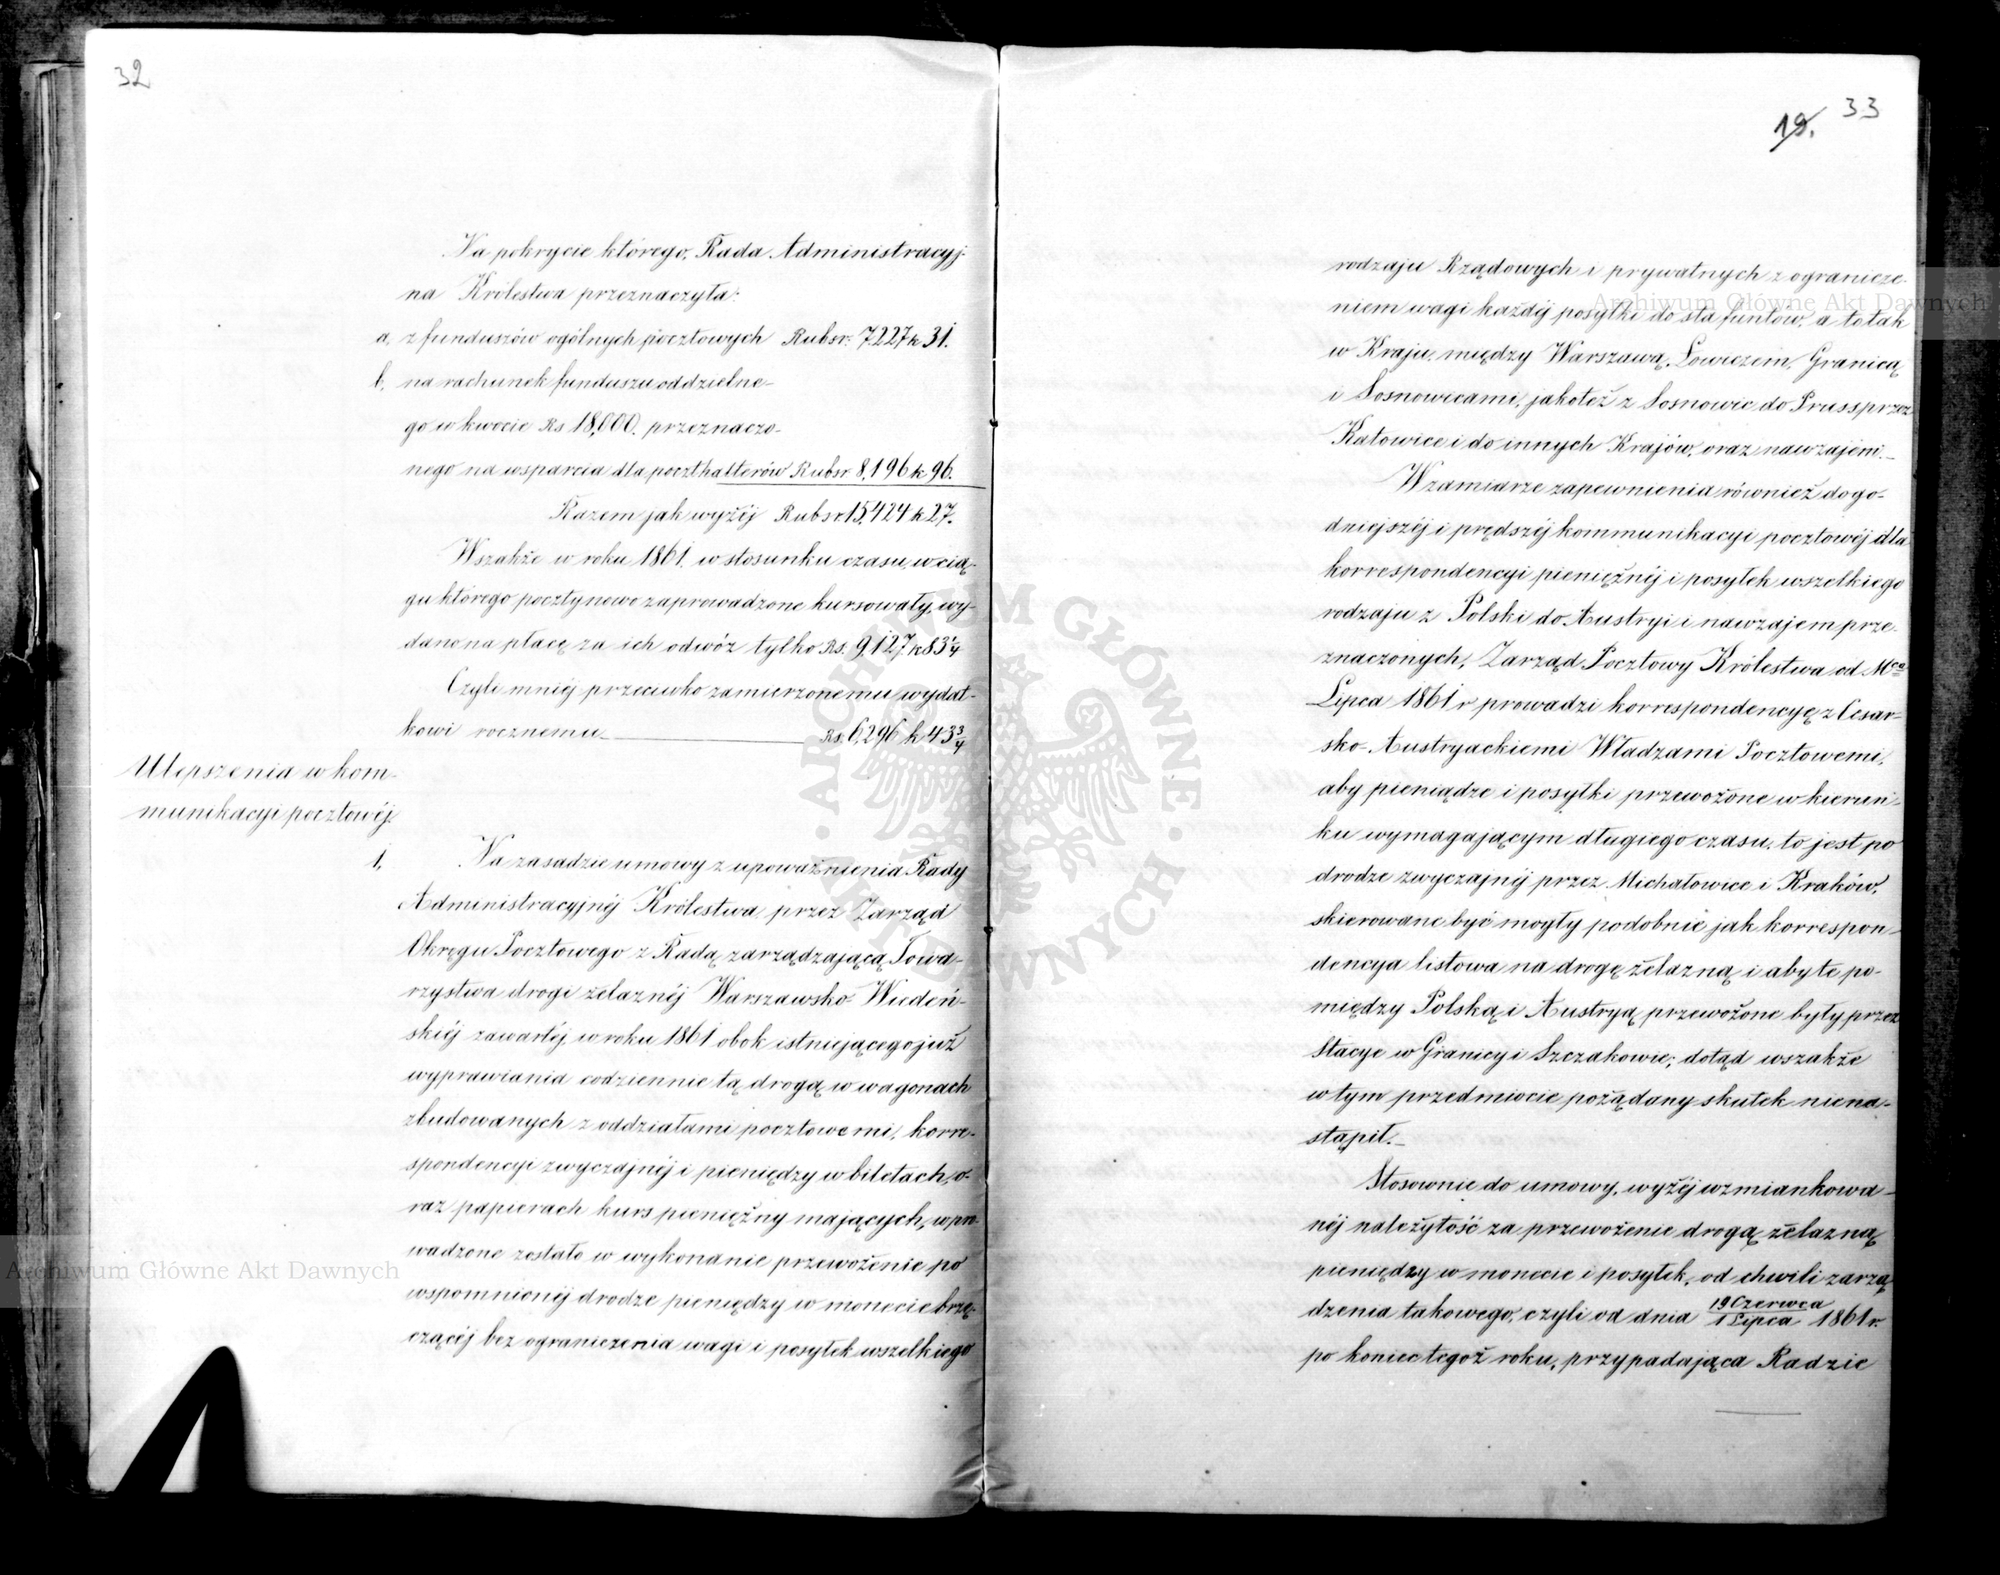 32
Na pokrycie którego, Rada Administracyj-
na Królestwa przeznaczyła:
a, z funduszów ogólnych pocztowych Rubsr. 7.227 k 31.
b, na rachunek funduszu oddzielne-
go w kwocie Rs 18,000. przeznaczo-
nego na wsparcia dla poczthalterów Rubsr 8,196 k 96.
Razem jak wyżéj Rubsr 15,424 k 27.
Wszakże w roku 1861, w stosunku czasu, w cią-
gu którego poczty nowo zaprowadzone kursowały, wy-
dano na płacę za ich odwóz tylko Rs. 9,127 k 83 1/4
Czyli mniéj przeciwko zamierzonemu wydat-
kowi rocznemu Rs. 6,296 k 43 3/4
Ulepszenia w kom-
munikacyi pocztowéj.
1, Na zasadzie umowy z upoważnienia Rady
Administracyjnéj Królestwa, przez Zarząd
Okręgu Pocztowego z Radą zarządzającą Towa-
rzystwa drogi żelaznéj Warszawsko-Wiedeń-
skiéj zawartéj, w roku 1861 obok istniejącego już
wyprawiania codziennie tą drogą w wagonach
zbudowanych z oddziałami pocztowemi, korre-
spondencyi zwyczajnéj i pieniędzy w biletach, o-
raz papierach kurs pieniężny mających, wpro-
wadzone zostało w wykonanie przewożenie po
wspomnionéj drodze pieniędzy w monecie brzę-
czącéj bez ograniczenia wagi i posyłek wszelkiego
33
19.
rodzaju Rządowych i prywatnych z ogranicze-
niem wagi każdéj posyłki do sta funtów, a to tak
w Kraju, między Warszawą, Łowiczem, Granicą
i Sosnowicami, jakoteż z Sosnowic do Pruss przez
Katowice i do innych Krajów, oraz nawzajem.
W zamiarze zapewnienia również dogo-
dniejszéj i prędszéj kommunikacyi pocztowéj dla
korrespondencyi pieniężnéj i posyłek wszelkiego
rodzaju z Polski do Austryi i nawzajem prze-
znaczonych, Zarząd Pocztowy Królestwa od Mca
Lipca 1861 r prowadzi korrespondencyę z Cesar-
sko-Austryackiemi Władzami Pocztowemi,
aby pieniądze i posyłki przewożone w kierun-
ku wymagającym długiego czasu, to jest po
drodze zwyczajnéj przez Michałowice i Kraków,
skierowane być mogły podobnie jak korrespon-
dencya listowa na drogę żelazną i aby te po-
między Polską i Austryą przewożone były przez
Stacye w Granicy i Szczakowie; dotąd wszakże
w tym przedmiocie pożądany skutek niena-
stąpił.
Stosownie do umowy, wyżéj wzmiankowa-
néj należytość za przewożenie drogą żelazną
pieniędzy w monecie i posyłek, od chwili zarzą-
dzenia takowego, czyli od dnia 19 Czerwca/1 Lipca 1861 r.
po koniec tegoż roku, przypadająca Radzie
Archiwum Główne Akt Dawnych
Archiwum Główne Akt Dawnych
ARCHIWUM GŁÓWNE AKT DAWNYCH